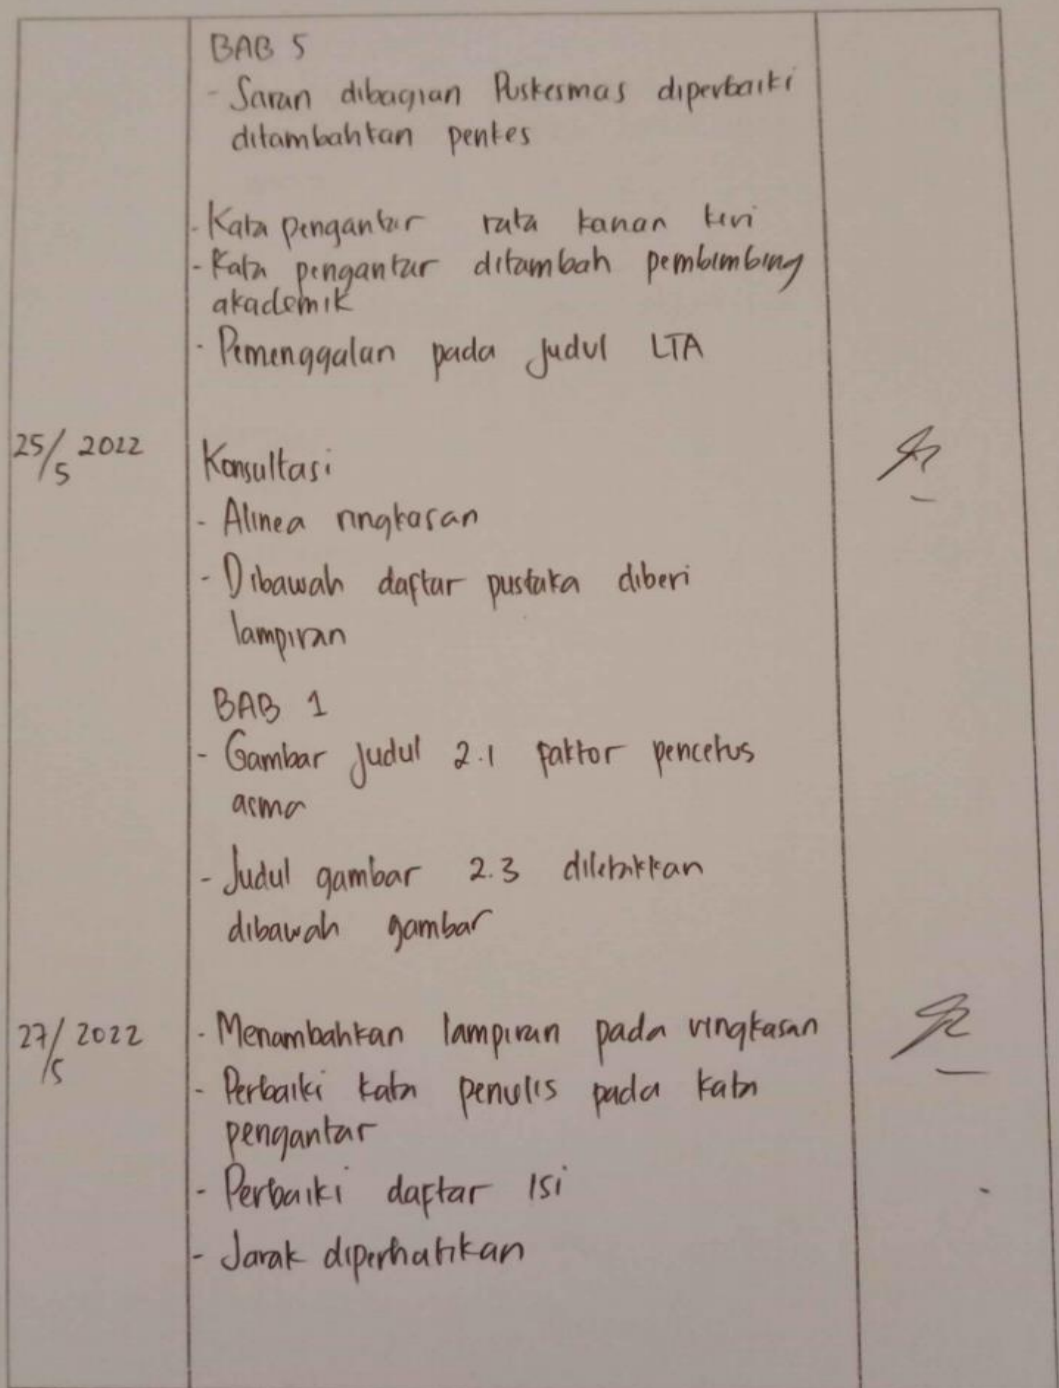 BAB 5
- Saran dibagian Puskesmas diperbaiki
ditambahkan penkes
- Kata pengantar rata kanan kiri
- Kata pengantar ditambah pembimbing
akademik
- Pemenggalan pada judul LTA
25/5 2022
Konsultasi
- Alinea ringkasan
- Dibawah daftar pustaka diberi
lampiran
BAB 1
- Gambar judul 2.1 faktor pencetus
asma
- Judul gambar 2.3 diletakkan
dibawah gambar
27/5 2022 - Menambahkan lampiran pada ringkasan
- Perbaiki kata penulis pada kata
pengantar
- Perbaiki daftar isi
- Jarak diperhatikan